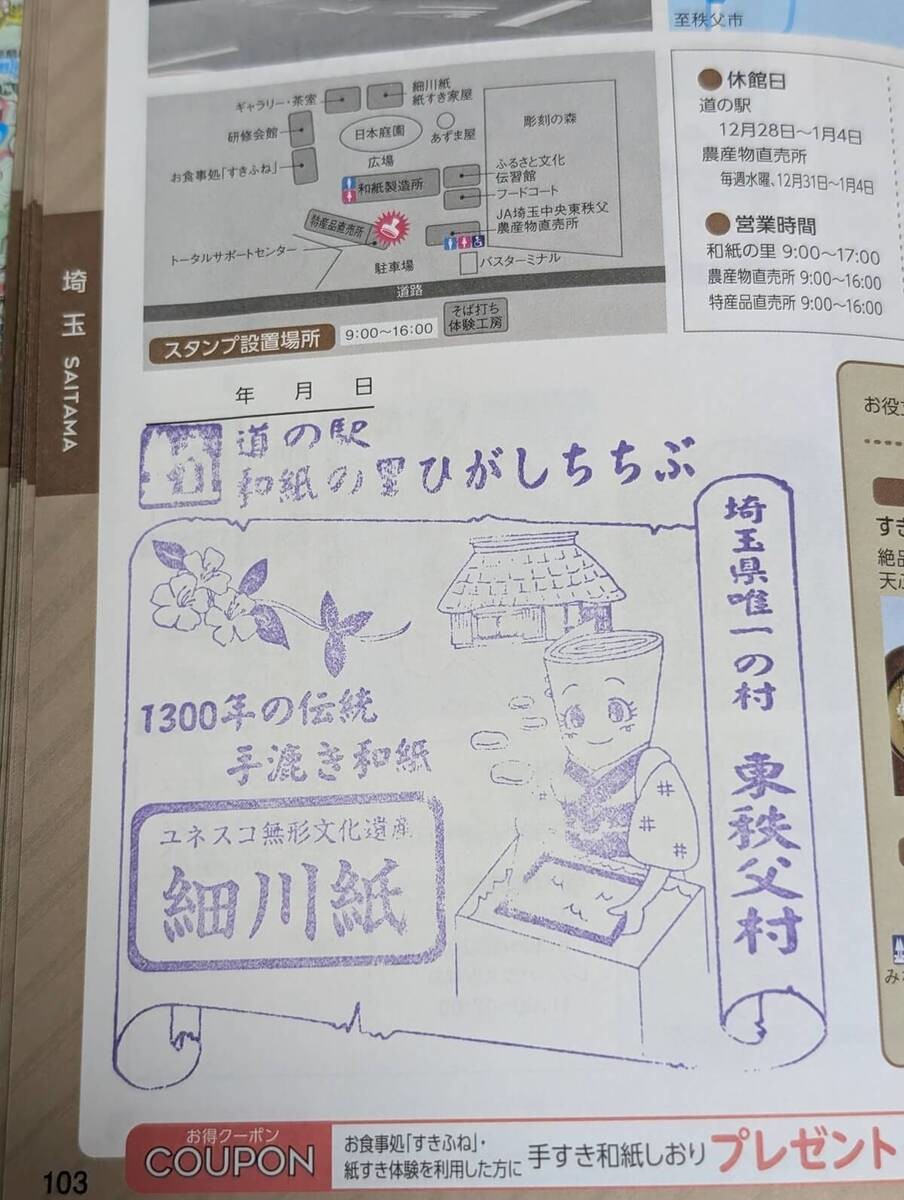 至秩父市
ギャラリー・茶室
細川紙
紙すき家屋
研修会館
日本庭園
あずま屋
彫刻の森
お食事処「すきふね」
広場
和紙製造所
ふるさと文化
伝習館
フードコート
特産品直売所
JA埼玉中央東秩父
農産物直売所
トータルサポートセンター
駐車場
バスターミナル
道路
そば打ち
体験工房
スタンプ設置場所
9:00〜16:00
休館日
道の駅
12月28日〜1月4日
農産物直売所
毎週水曜、12月31日〜1月4日
営業時間
和紙の里 9:00〜17:00
農産物直売所 9:00〜16:00
特産品直売所 9:00〜16:00
埼玉 SAITAMA
年 月 日
道の駅
和紙の里ひがしちちぶ
埼玉県唯一の村 東秩父村
1300年の伝統
手漉き和紙
ユネスコ無形文化遺産
細川紙
お役立
すき
絶品
天ぷ
お得クーポン
COUPON
お食事処「すきふね」・
紙すき体験を利用した方に
手すき和紙しおり プレゼント
103